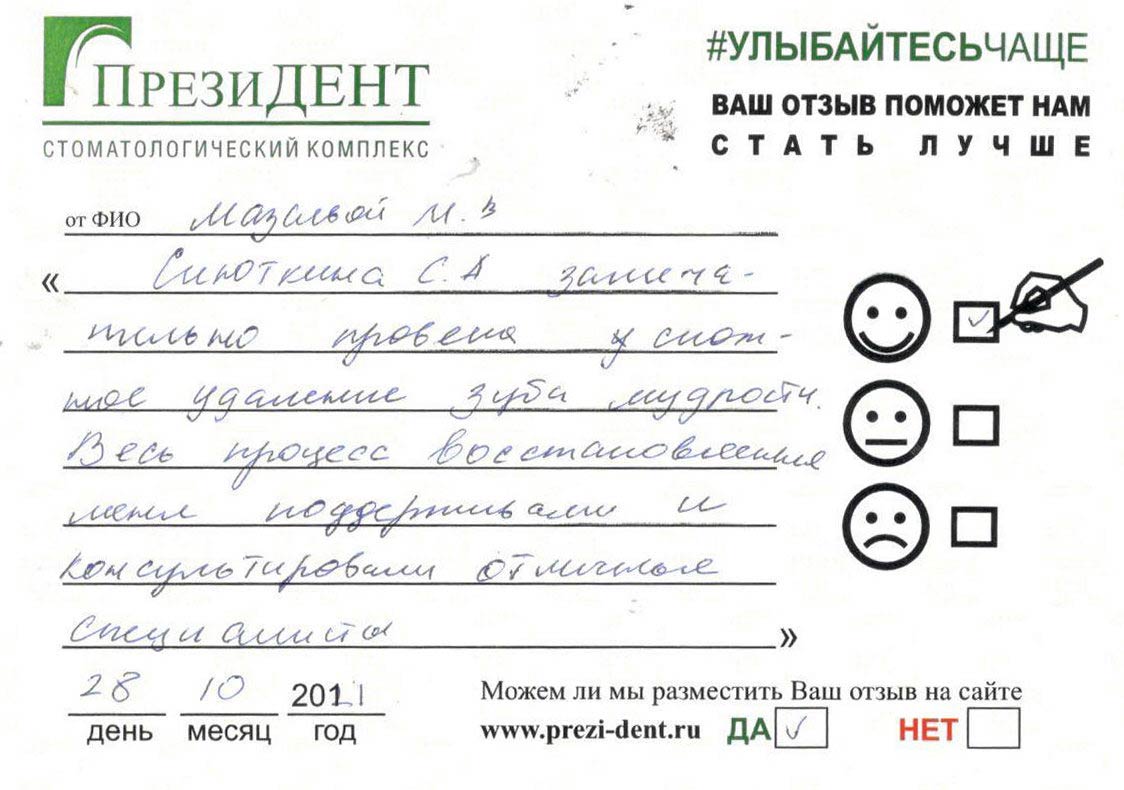 ПрезиДЕНТ
СТОМАТОЛОГИЧЕСКИЙ КОМПЛЕКС
#УЛЫБАЙТЕСЬЧАЩЕ
ВАШ ОТЗЫВ ПОМОЖЕТ НАМ
СТАТЬ ЛУЧШЕ
от ФИО М. В
« С.А замеча-
тельно провела у слож-
ное удаление зуба мудрости.
Весь процесс восстановления
меня поддерживали и
консультировали отличные
специалисты »
28 10 2021
день месяц год
Можем ли мы разместить Ваш отзыв на сайте
www.prezi-dent.ru ДА НЕТ